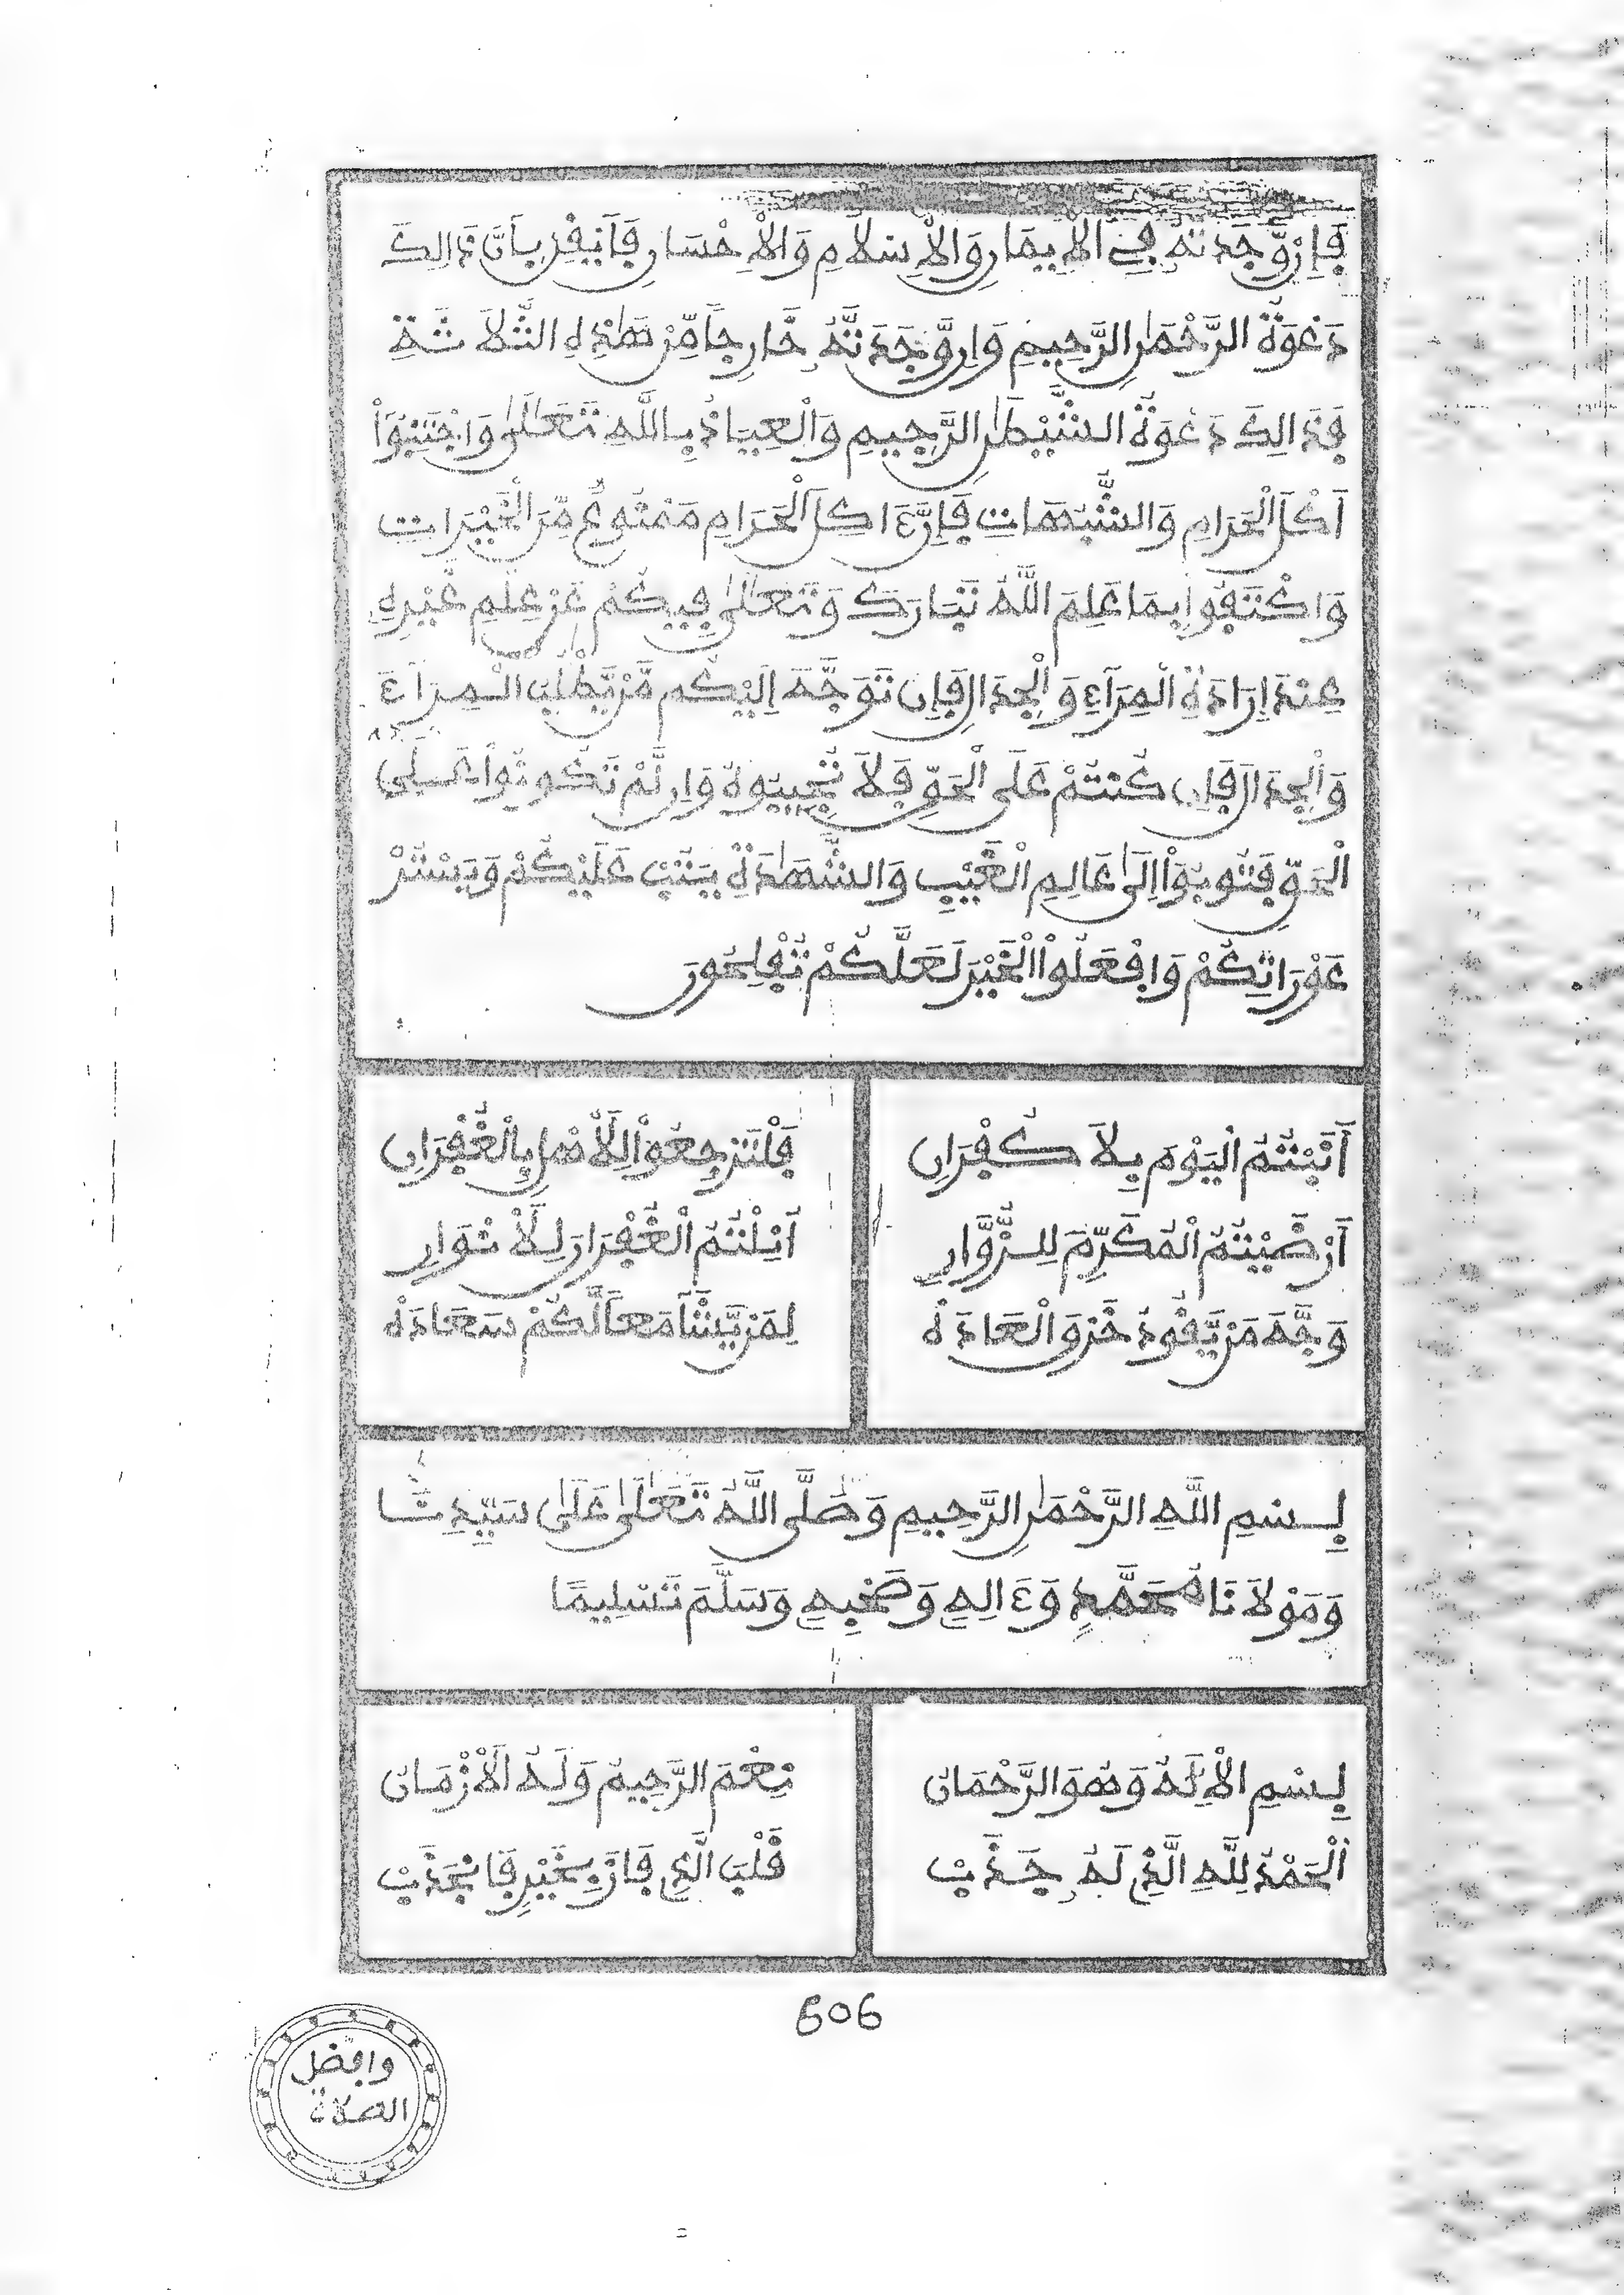 فَإِن وَّجَدتَّهُ فِي الْإِيمَانِ وَالْإِسْلَامِ وَالْإِحْسَانِ فَأَيْقِنْ بِأَنَّ ذَالِكَ
دَعْوَةُ الرَّحْمَٰنِ الرَّحِيمِ وَإِن وَّجَدتَّهُ خَارِجًا مِّنْ هَٰذِهِ الثَّلَاثَةِ
فَذَالِكَ دَعْوَةُ الشَّيْطَٰنِ الرَّجِيمِ وَالْعِيَاذُ بِاللَّهِ تَعَٰلَىٰ وَاجْتَنِبُوا
أَكْلَ الْحَرَامِ وَالشُّبُهَاتِ فَإِنَّ ءَاكِلَ الْحَرَامِ مَمْنُوعٌ مِّنَ الْخَيْرَاتِ
وَاكْتَفُوا بِمَا عَلِمَ اللَّهُ تَبَارَكَ وَتَعَٰلَىٰ فِيكُمْ عَنْ عِلْمِ غَيْرِهِ
عِنْدَ إِرَادَةِ الْمِرَآءِ وَالْجِدَالِ فَإِن تَوَجَّهَ إِلَيْكُم مَّن يَّطْلُبُ الْمِرَآءَ
وَالْجِدَالَ فَإِن كُنتُمْ عَلَى الْحَقِّ فَلَا تُجِيبُوهُ وَإِن لَّمْ تَكُونُوا عَلَى
الْحَقِّ فَتُوبُوا إِلَىٰ عَالِمِ الْغَيْبِ وَالشَّهَٰدَةِ يَتُبْ عَلَيْكُمْ وَيَسْتُرْ
عَوْرَاتِكُمْ وَافْعَلُوا الْخَيْرَ لَعَلَّكُمْ تُفْلِحُونَ
أَتَيْتُمُ الْيَوْمَ بِلَا كُفْرَانِ فَلْتَرْجِعُوا لِلْأَهْلِ بِالْغُفْرَانِ
أَرْضَيْتُمُ الْمُكَرِّمَ لِلزُّوَّارِ أَنِلْتُمُ الْغُفْرَانَ لِلْأَثْوَارِ
وَجَّهَ مَن يَّقُودُ خَرْقَ الْعَادَهْ لِمَن يَّشَآ مَعًا لَّكُمْ سَعَادَهْ
بِسْمِ اللَّهِ الرَّحْمَٰنِ الرَّحِيمِ وَصَلَّى اللَّهُ تَعَٰلَىٰ عَلَىٰ سَيِّدِنَا
وَمَوْلَانَا مُحَمَّدٍ وَءَالِهِ وَصَحْبِهِ وَسَلَّمَ تَسْلِيمًا
بِسْمِ الْإِلَٰهِ وَهُوَ الرَّحْمَانُ نِعْمَ الرَّحِيمُ وَلَهُ الْأَزْمَانُ
الْحَمْدُ لِلَّهِ الَّذِي لَهُ جَذَبْ قَلْبَ الَّذِي فَازَ بِخَيْرٍ فَانْجَذَبْ
606
وافضل
الصلاة